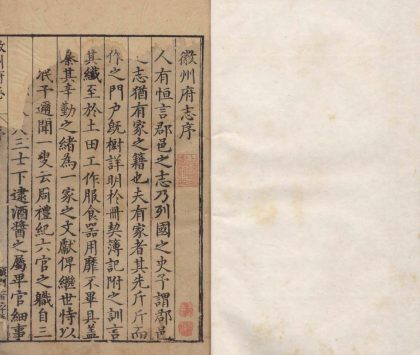 徽州府志序
人有恒言郡邑之志乃列國之史予謂郡邑
之志猶有家之籍也夫有家者其先斤斤而
作之門戶既樹詳明於冊契簿記附之訓言
其纖至於土田工作服食器用靡不畢具蓋
秦其辛勤之緒為一家之文獻俾繼世恃以
泯予適聞一叟云周禮紀六官之職自三
三士下逮酒醬之屬畢官細事